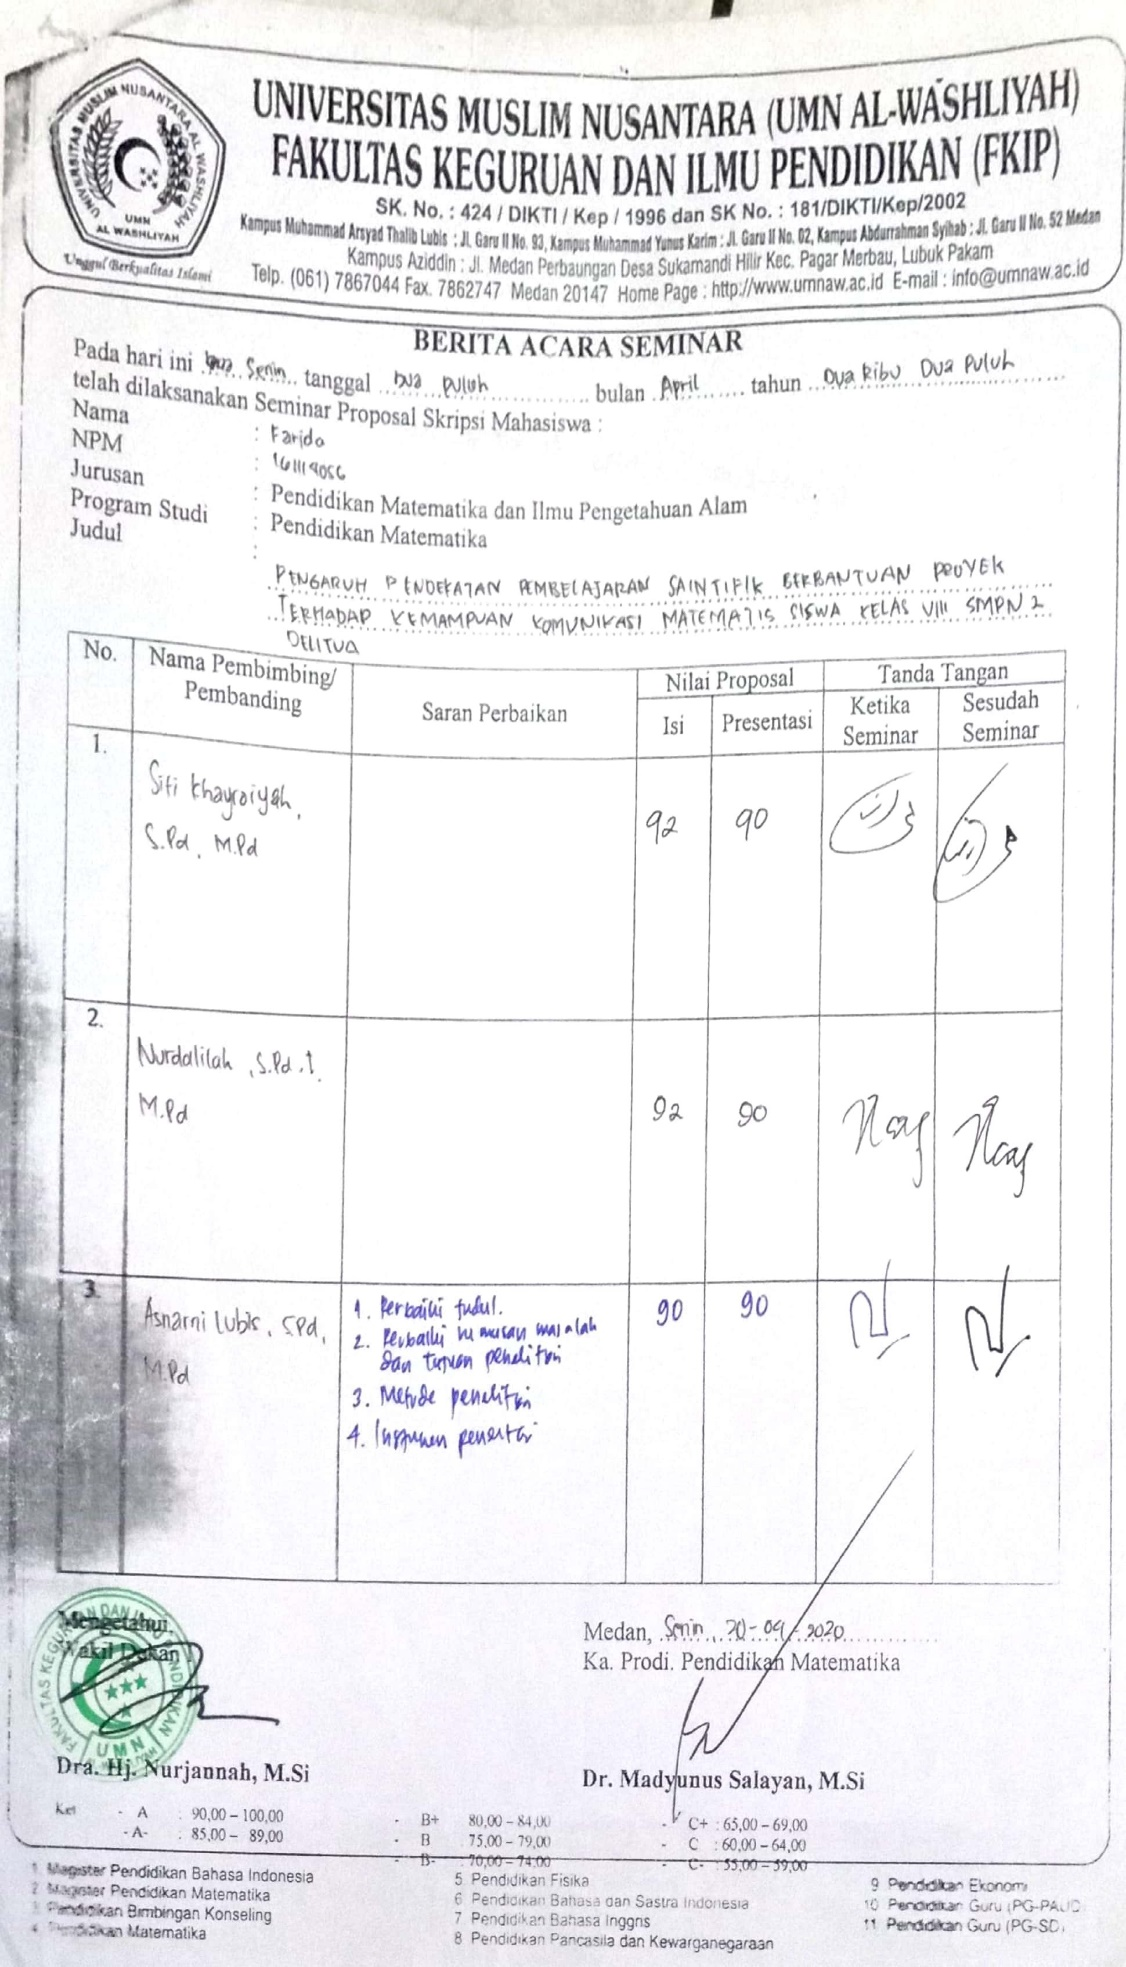 UNIVERSITAS MUSLIM NUSANTARA AL WASHLIYAH
UMN
AL WASHLIYAH
Unggul Berkualitas Islami
UNIVERSITAS MUSLIM NUSANTARA (UMN AL-WASHLIYAH)
FAKULTAS KEGURUAN DAN ILMU PENDIDIKAN (FKIP)
SK. No. : 424 / DIKTI / Kep / 1996 dan SK No. : 181/DIKTI/Kep/2002
Kampus Muhammad Arsyad Thalib Lubis : Jl. Garu II No. 93, Kampus Muhammad Yunus Karim : Jl. Garu II No. 02, Kampus Abdurrahman Syihab : Jl. Garu II No. 52 Medan
Kampus Aziddin : Jl. Medan Perbaungan Desa Sukamandi Hilir Kec. Pagar Merbau, Lubuk Pakam
Telp. (061) 7867044 Fax. 7862747 Medan 20147 Home Page : http://www.umnaw.ac.id E-mail : info@umnaw.ac.id
BERITA ACARA SEMINAR
Pada hari ini Senin tanggal Dua puluh bulan April tahun Dua Ribu Dua Puluh
telah dilaksanakan Seminar Proposal Skripsi Mahasiswa :
Nama : Farida
NPM : 161114056
Jurusan : Pendidikan Matematika dan Ilmu Pengetahuan Alam
Program Studi : Pendidikan Matematika
Judul :
PENGARUH PENDEKATAN PEMBELAJARAN SAINTIFIK BERBANTUAN PROYEK
TERHADAP KEMAMPUAN KOMUNIKASI MATEMATIS SISWA KELAS VIII SMPN 2
DELITUA
No. Nama Pembimbing/ Pembanding Saran Perbaikan Nilai Proposal Tanda Tangan
Isi Presentasi Ketika Seminar Sesudah Seminar
1. Siti Khayroiyah, 92 90
S.Pd, M.Pd
2. Nurdalilah, S.Pd.I, 92 90
M.Pd
3. Asnarni Lubis, S.Pd, 90 90
M.Pd
1. Perbaiki judul.
2. Perbaiki rumusan masalah
dan tujuan penelitian
3. Metode penelitian
4. Instrumen penelitian
Mengetahui
Wakil Dekan
FAKULTAS KEGURUAN DAN ILMU PENDIDIKAN
UMN
Dra. Hj. Nurjannah, M.Si
Medan, Senin, 20-04-2020
Ka. Prodi. Pendidikan Matematika
Dr. Madyunus Salayan, M.Si
Ket - A : 90,00 – 100,00 - B+ 80,00 – 84,00 - C+ : 65,00 – 69,00
- A- : 85,00 – 89,00 - B 75,00 – 79,00 - C : 60,00 – 64,00
- B- : 70,00 – 74,00 - C- : 55,00 – 59,00
1 Magister Pendidikan Bahasa Indonesia
2 Magister Pendidikan Matematika
3 Pendidikan Bimbingan Konseling
4 Pendidikan Matematika
5 Pendidikan Fisika
6 Pendidikan Bahasa dan Sastra Indonesia
7 Pendidikan Bahasa Inggris
8 Pendidikan Pancasila dan Kewarganegaraan
9 Pendidikan Ekonomi
10 Pendidikan Guru (PG-PAUD
11 Pendidikan Guru (PG-SD)